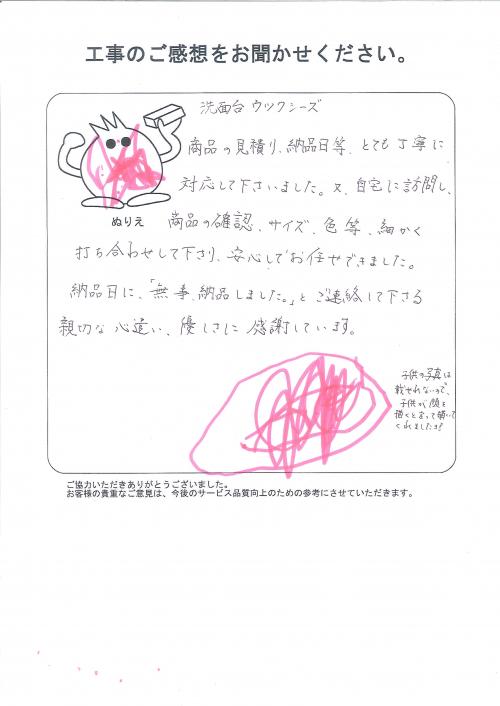 工事のご感想をお聞かせください。
洗面台 ウツクシーズ
商品の見積り、納品日等、とても丁寧に
対応して下さいました。又、自宅に訪問し、
ぬりえ
商品の確認、サイズ、色等、細かく
打ち合わせして下さり、安心してお任せできました。
納品日に、「無事、納品しました。」とご連絡して下さる
親切な心遣い、優しさに感謝しています。
子供の写真は
載せれないので、
子供が顔を
描くと言って描いて
くれました!
ご協力いただきありがとうございました。
お客様の貴重なご意見は、今後のサービス品質向上のための参考にさせていただきます。